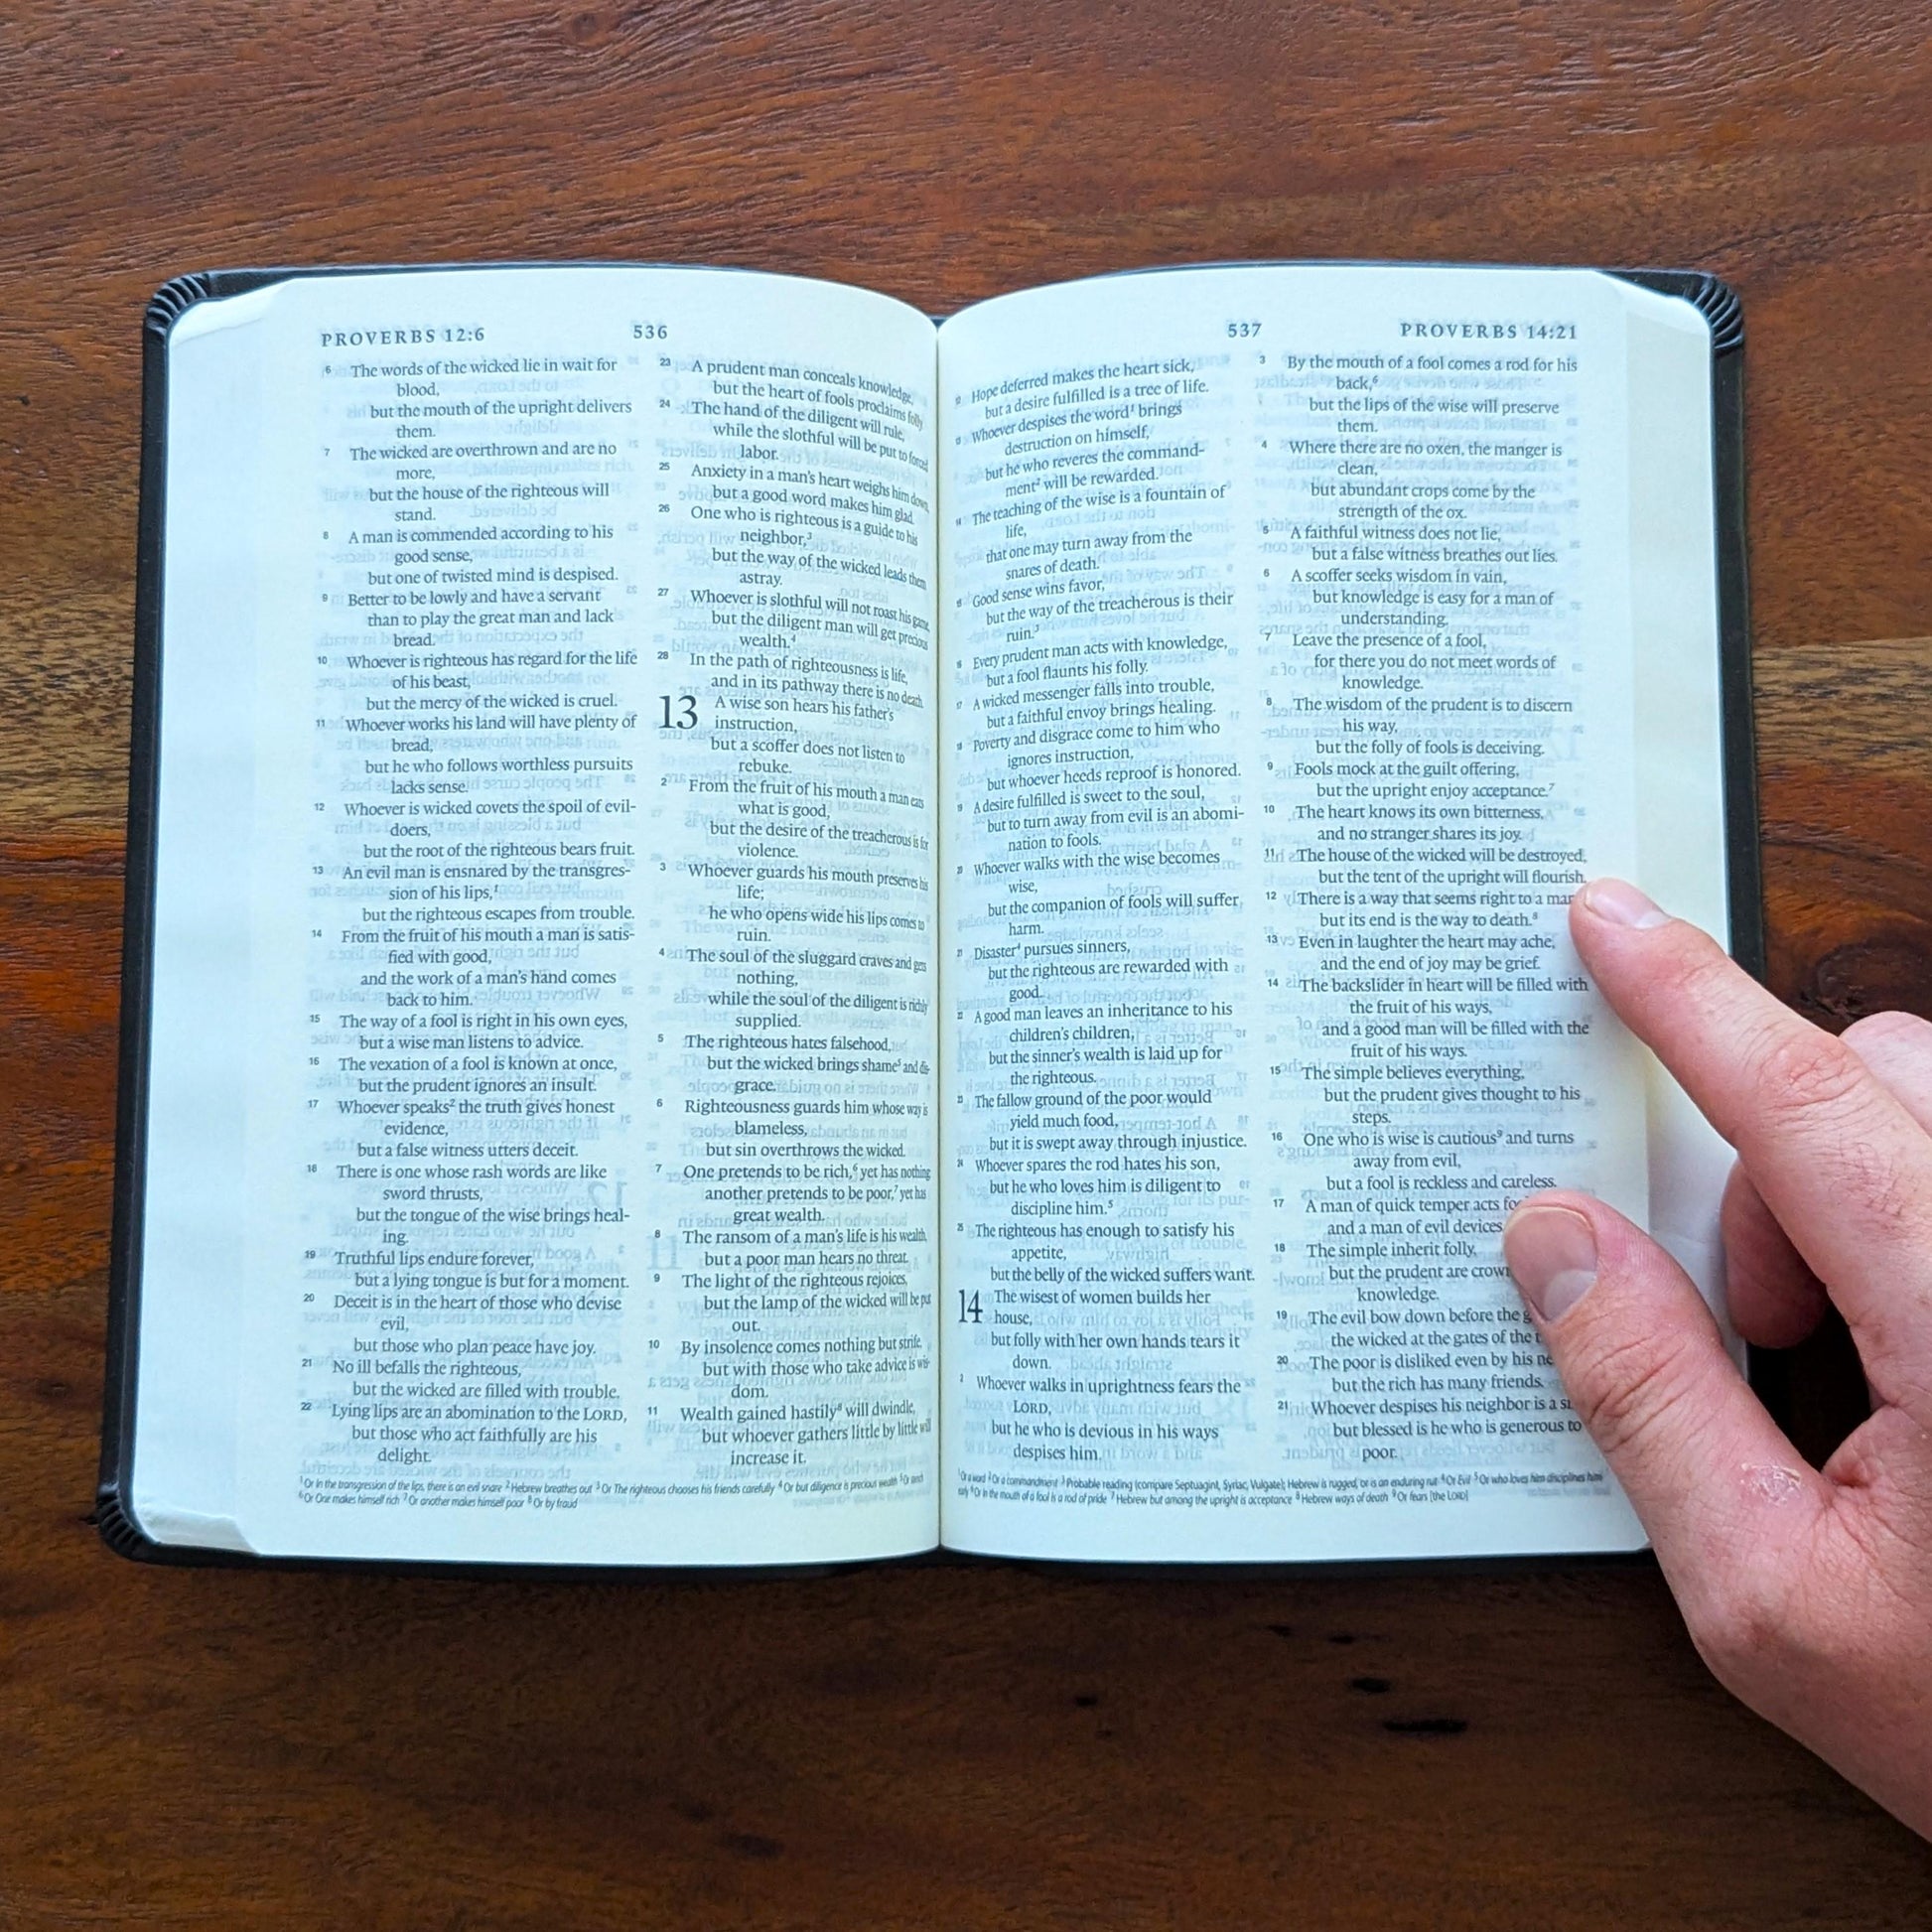 PROVERBS 12:6
536
6 The words of the wicked lie in wait for
blood,
but the mouth of the upright delivers
them.
7 The wicked are overthrown and are no
more,
but the house of the righteous will
stand.
8 A man is commended according to his
good sense,
but one of twisted mind is despised.
9 Better to be lowly and have a servant
than to play the great man and lack
bread.
10 Whoever is righteous has regard for the life
of his beast,
but the mercy of the wicked is cruel.
11 Whoever works his land will have plenty of
bread,
but he who follows worthless pursuits
lacks sense.
12 Whoever is wicked covets the spoil of evil-
doers,
but the root of the righteous bears fruit.
13 An evil man is ensnared by the transgres-
sion of his lips,1
but the righteous escapes from trouble.
14 From the fruit of his mouth a man is satis-
fied with good,
and the work of a man's hand comes
back to him.
15 The way of a fool is right in his own eyes,
but a wise man listens to advice.
16 The vexation of a fool is known at once,
but the prudent ignores an insult.
17 Whoever speaks2 the truth gives honest
evidence,
but a false witness utters deceit.
18 There is one whose rash words are like
sword thrusts,
but the tongue of the wise brings heal-
ing.
19 Truthful lips endure forever,
but a lying tongue is but for a moment.
20 Deceit is in the heart of those who devise
evil,
but those who plan peace have joy.
21 No ill befalls the righteous,
but the wicked are filled with trouble.
22 Lying lips are an abomination to the LORD,
but those who act faithfully are his
delight.
23 A prudent man conceals knowledge,
but the heart of fools proclaims folly
24 The hand of the diligent will rule,
while the slothful will be put to forced
labor.
25 Anxiety in a man's heart weighs him down,
but a good word makes him glad.
26 One who is righteous is a guide to his
neighbor,3
but the way of the wicked leads them
astray.
27 Whoever is slothful will not roast his game,
but the diligent man will get precious
wealth.4
28 In the path of righteousness is life,
and in its pathway there is no death.
13 A wise son hears his father's
instruction,
but a scoffer does not listen to
rebuke.
2 From the fruit of his mouth a man eats
what is good,
but the desire of the treacherous is for
violence.
3 Whoever guards his mouth preserves his
life;
he who opens wide his lips comes to
ruin.
4 The soul of the sluggard craves and gets
nothing,
while the soul of the diligent is richly
supplied.
5 The righteous hates falsehood,
but the wicked brings shame5 and dis-
grace.
6 Righteousness guards him whose way is
blameless,
but sin overthrows the wicked.
7 One pretends to be rich,6 yet has nothing
another pretends to be poor,7 yet has
great wealth.
8 The ransom of a man's life is his wealth,
but a poor man hears no threat.
9 The light of the righteous rejoices,
but the lamp of the wicked will be put
out.
10 By insolence comes nothing but strife,
but with those who take advice is wis-
dom.
11 Wealth gained hastily8 will dwindle,
but whoever gathers little by little will
increase it.
1 Or In the transgression of the lips, there is an evil snare 2 Hebrew breathes out 3 Or The righteous chooses his friends carefully 4 Or but diligence is precious wealth 5 Or
6 Or One makes himself rich 7 Or another makes himself poor 8 Or by fraud
537
PROVERBS 14:21
12 Hope deferred makes the heart sick,
but a desire fulfilled is a tree of life.
13 Whoever despises the word1 brings
destruction on himself,
but he who reveres the command-
ment2 will be rewarded.
14 The teaching of the wise is a fountain of
life,
that one may turn away from the
snares of death.
15 Good sense wins favor,
but the way of the treacherous is their
ruin.3
16 Every prudent man acts with knowledge,
but a fool flaunts his folly.
17 A wicked messenger falls into trouble,
but a faithful envoy brings healing.
18 Poverty and disgrace come to him who
ignores instruction,
but whoever heeds reproof is honored.
19 A desire fulfilled is sweet to the soul,
but to turn away from evil is an abomi-
nation to fools.
20 Whoever walks with the wise becomes
wise,
but the companion of fools will suffer
harm.
21 Disaster4 pursues sinners,
but the righteous are rewarded with
good.
22 A good man leaves an inheritance to his
children's children,
but the sinner's wealth is laid up for
the righteous.
23 The fallow ground of the poor would
yield much food,
but it is swept away through injustice.
24 Whoever spares the rod hates his son,
but he who loves him is diligent to
discipline him.5
25 The righteous has enough to satisfy his
appetite,
but the belly of the wicked suffers want.
14 The wisest of women builds her
house,
but folly with her own hands tears it
down.
2 Whoever walks in uprightness fears the
LORD,
but he who is devious in his ways
despises him.
3 By the mouth of a fool comes a rod for his
back,6
but the lips of the wise will preserve
them.
4 Where there are no oxen, the manger is
clean,
but abundant crops come by the
strength of the ox.
5 A faithful witness does not lie,
but a false witness breathes out lies.
6 A scoffer seeks wisdom in vain,
but knowledge is easy for a man of
understanding.
7 Leave the presence of a fool,
for there you do not meet words of
knowledge.
8 The wisdom of the prudent is to discern
his way,
but the folly of fools is deceiving.
9 Fools mock at the guilt offering,
but the upright enjoy acceptance.7
10 The heart knows its own bitterness,
and no stranger shares its joy.
11 The house of the wicked will be destroyed,
but the tent of the upright will flourish.
12 There is a way that seems right to a man
but its end is the way to death.8
13 Even in laughter the heart may ache,
and the end of joy may be grief.
14 The backslider in heart will be filled with
the fruit of his ways,
and a good man will be filled with the
fruit of his ways.
15 The simple believes everything,
but the prudent gives thought to his
steps.
16 One who is wise is cautious9 and turns
away from evil,
but a fool is reckless and careless.
17 A man of quick temper acts
and a man of evil devices
18 The simple inherit folly,
but the prudent are
knowledge.
19 The evil bow down before the
the wicked at the gates of the
20 The poor is disliked even by his
but the rich has many friends.
21 Whoever despises his neighbor is a
but blessed is he who is generous to
poor.
1 Or a word 2 Or a commandment 3 Probable reading (compare Septuagint, Syriac, Vulgate); Hebrew is rugged, or is an enduring rut 4 Or Evil 5 Or who loves him disciplines him
6 Or In the mouth of a fool is a rod of pride 7 Hebrew but among the upright is acceptance 8 Hebrew ways of death 9 Or fears [the LORD]